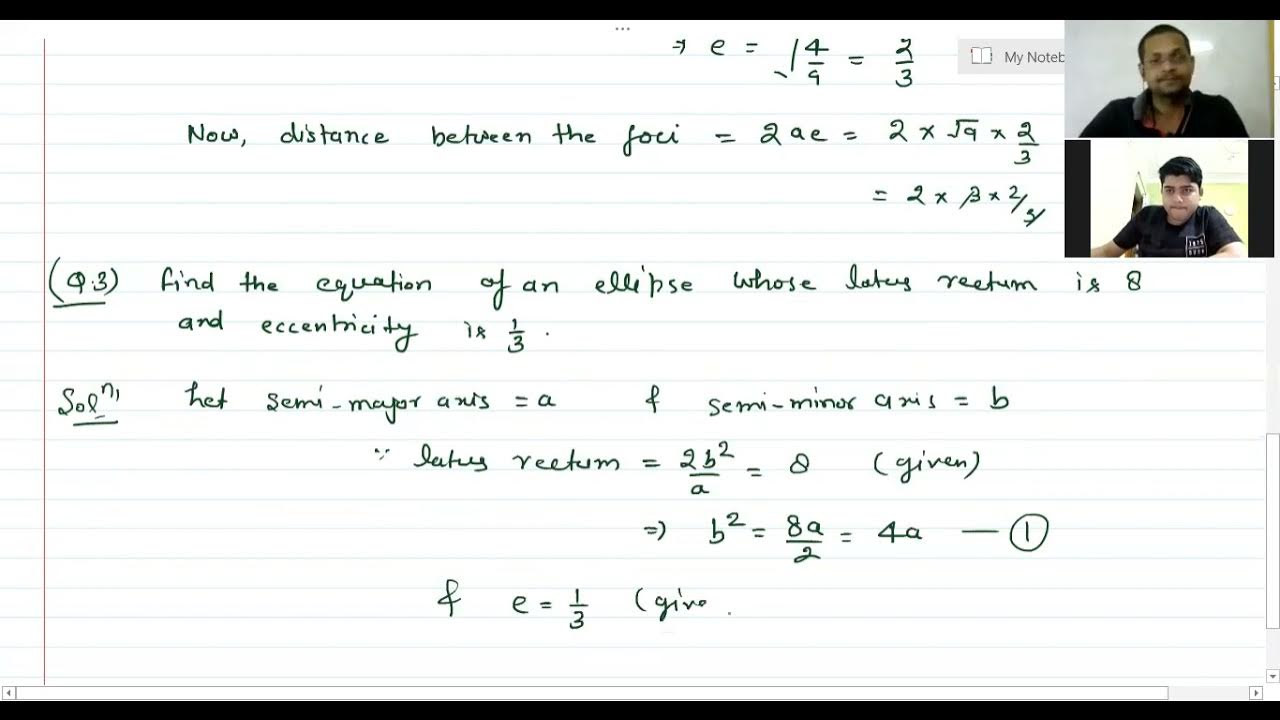 ⇒ e = √4/9 = 2/3
My Noteb
Now, distance between the foci = 2ae = 2 × √9 × 2/3
= 2 × 3 × 2/3
(Q.3) Find the equation of an ellipse whose latus rectum is 8
and eccentricity is 1/3.
Solⁿ, Let semi-major axis = a & semi-minor axis = b
∵ latus rectum = 2b²/a = 8 (given)
⇒ b² = 8a/2 = 4a — ①
& e = 1/3 (give